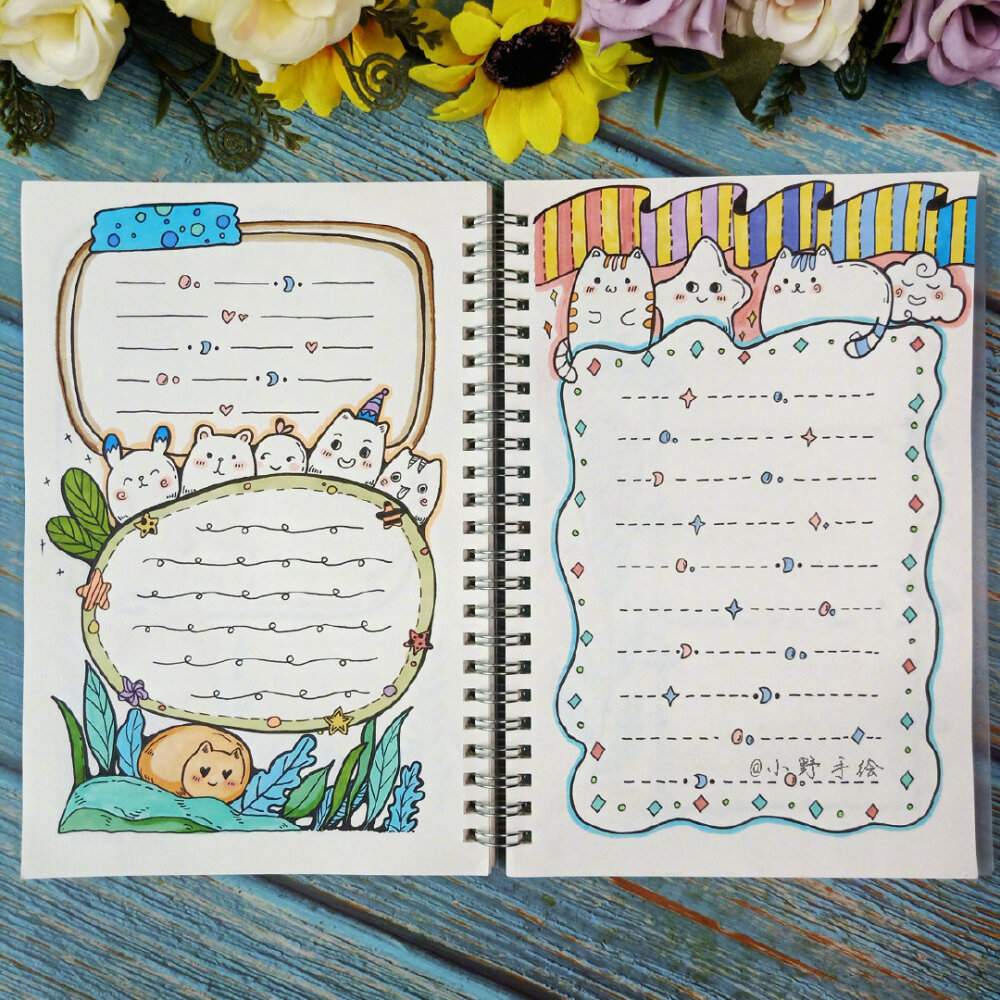 @小野手绘